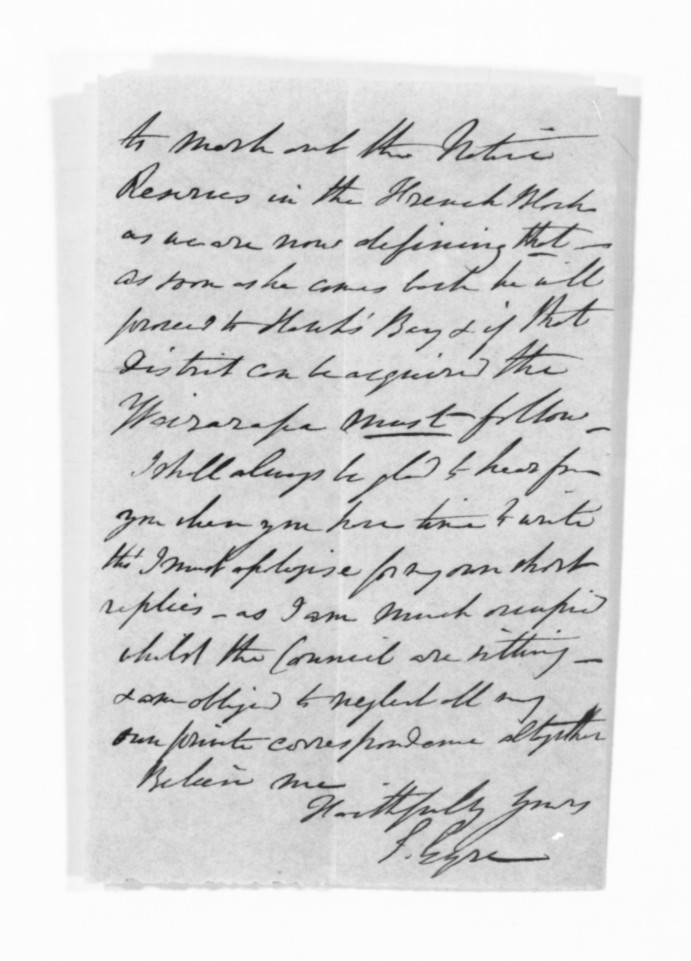 to mark out the Native
Reserves in the French Block
as we are now defining that —
as soon as he comes back he will
proceed to Hawke's Bay & if that
District can be acquired the
Wairarapa must follow —
I shall always be glad to hear from
you when you have time to write
tho' I must apologise for my own short
replies — as I am much occupied
whilst the Council are sitting —
& am obliged to neglect all my
own private correspondence altogether
Believe me
Faithfully Yours
E. Eyre